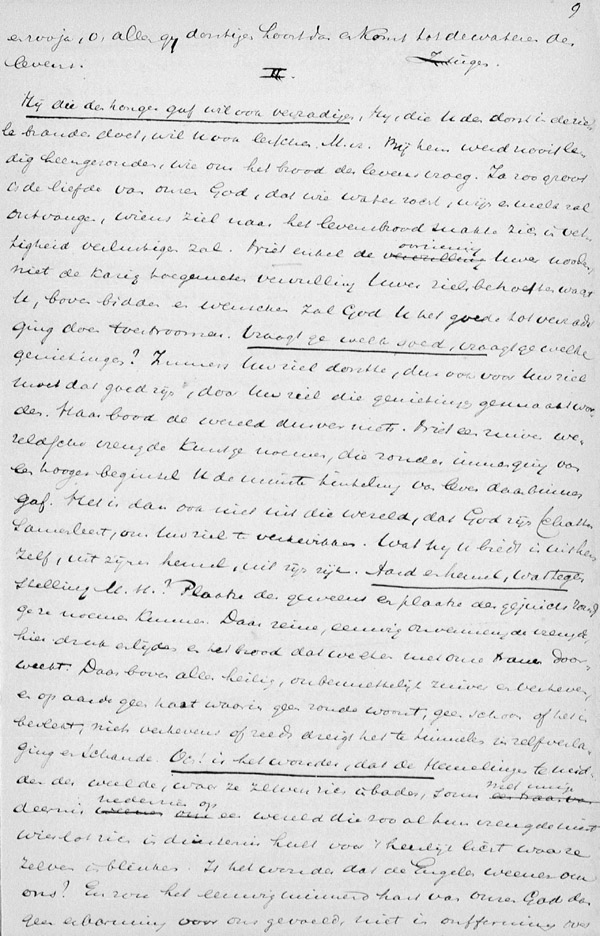 9
en roept, o, alle gy dorstigen hoort dan en komt tot de wateren des
levens. Zingen.
II.
Hy die den honger gaf wil ook verzadigen, Hy, die U den dorst in de zie-
le branden doet, wil U ook lesschen, M. H. By hem werd nooit le-
dig heengezonden, wie om het brood des levens vroeg. Ja zoo groot
is de liefde van onzen God, dat wie water zocht, wijn en melk zal
ontvangen, wiens ziel naar het levensbrood smakte zich in vet-
tigheid verlustigen zal. Niet enkel de voorziening Uwer nooden,
niet de karig toegemeten vervulling Uwer zielsbehoeften wacht
U, boven bidden en wenschen zal God U het goede tot verzadi-
ging doen toestroomen. Vraagt ge welk goed, vraagt ge welke
genietingen? Immers Uw ziel dorstte, dus ook voor Uw ziel
moet dat goed zijn, door Uw ziel die genieting gesmaakt wor-
den. Haar bood de wereld dus niets. Niet een zuiver we-
reldsche vreugde kunt ge noemen, die zonder inmenging van
een hooger beginsel U de minste tinteling van leven daarbinnen
gaf. Het is dan ook niet uit die wereld, dat God zijn schatten
samenleest, om Uw ziel te verkwikken. Wat hy U biedt is uit hem
zelf, uit zijnen hemel, uit zijn rijk. Aard en hemel, wat tegen-
stelling M. H.? Plaatse des geweens en plaatse des gejuichs zoudt
ge ze noemen kunnen. Daar reine, eeuwig onvermengde vreugde,
hier druk en lijden en het brood dat we eten met onze tranen door-
weekt. Daar boven alles heilig, onbesmettelijk zuiver en verheven,
en op aarde geen hart waarin geen zonde woont, geen schoon of het is
bevlekt, niets verhevens of reeds dreigt het te tuimelen in zelfverla-
ging en schande. Och! is het wonder, dat de Hemelingen te mid-
den der weelde, waar ze zelven zich in baden, soms met innig
deernis nederzien op een wereld die zoo al hun vreugde mist
wier lot zich in duisternis hult voor 't heerlijk licht waar ze
zelven in blinken. Is het wonder dat de Engelen weenen om
ons? En zou het eeuwig minnend hart van onzen God dan
geen erbarming voor ons gevoeld, niet in ontferming over